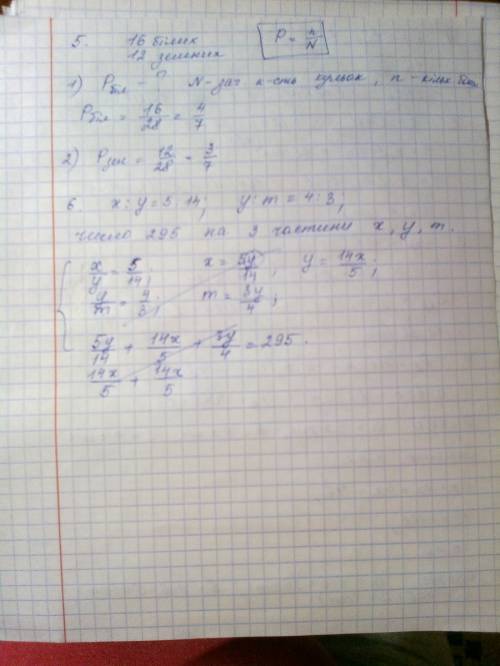 5. 16 білих
12 зелених
P = n/N
1) Pбіл = n N - заг к-сть кульок, n - кільк біл
Pбіл = 16/28 = 4/7
2) Pзел = 12/28 = 3/7
6. x : y = 5 : 14; y : m = 4 : 3;
число 295 на 3 частини x, y, m.
x/y = 5/14; x = 5y/14; y = 14x/5;
y/m = 4/3; m = 3y/4;
5y/14 + 14x/5 + 3y/4 = 295.
14x/5 + 14x/5